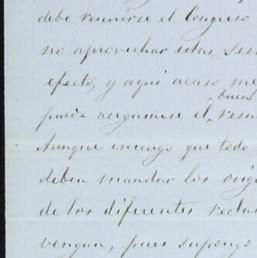 debe reunirse el Congreso
no aprovechar estas
efecto, y aqui acaso me
asegurarse el buen
Aunque encargo que todo
deben mandar los
de los diferentes
vengan, pues supongo